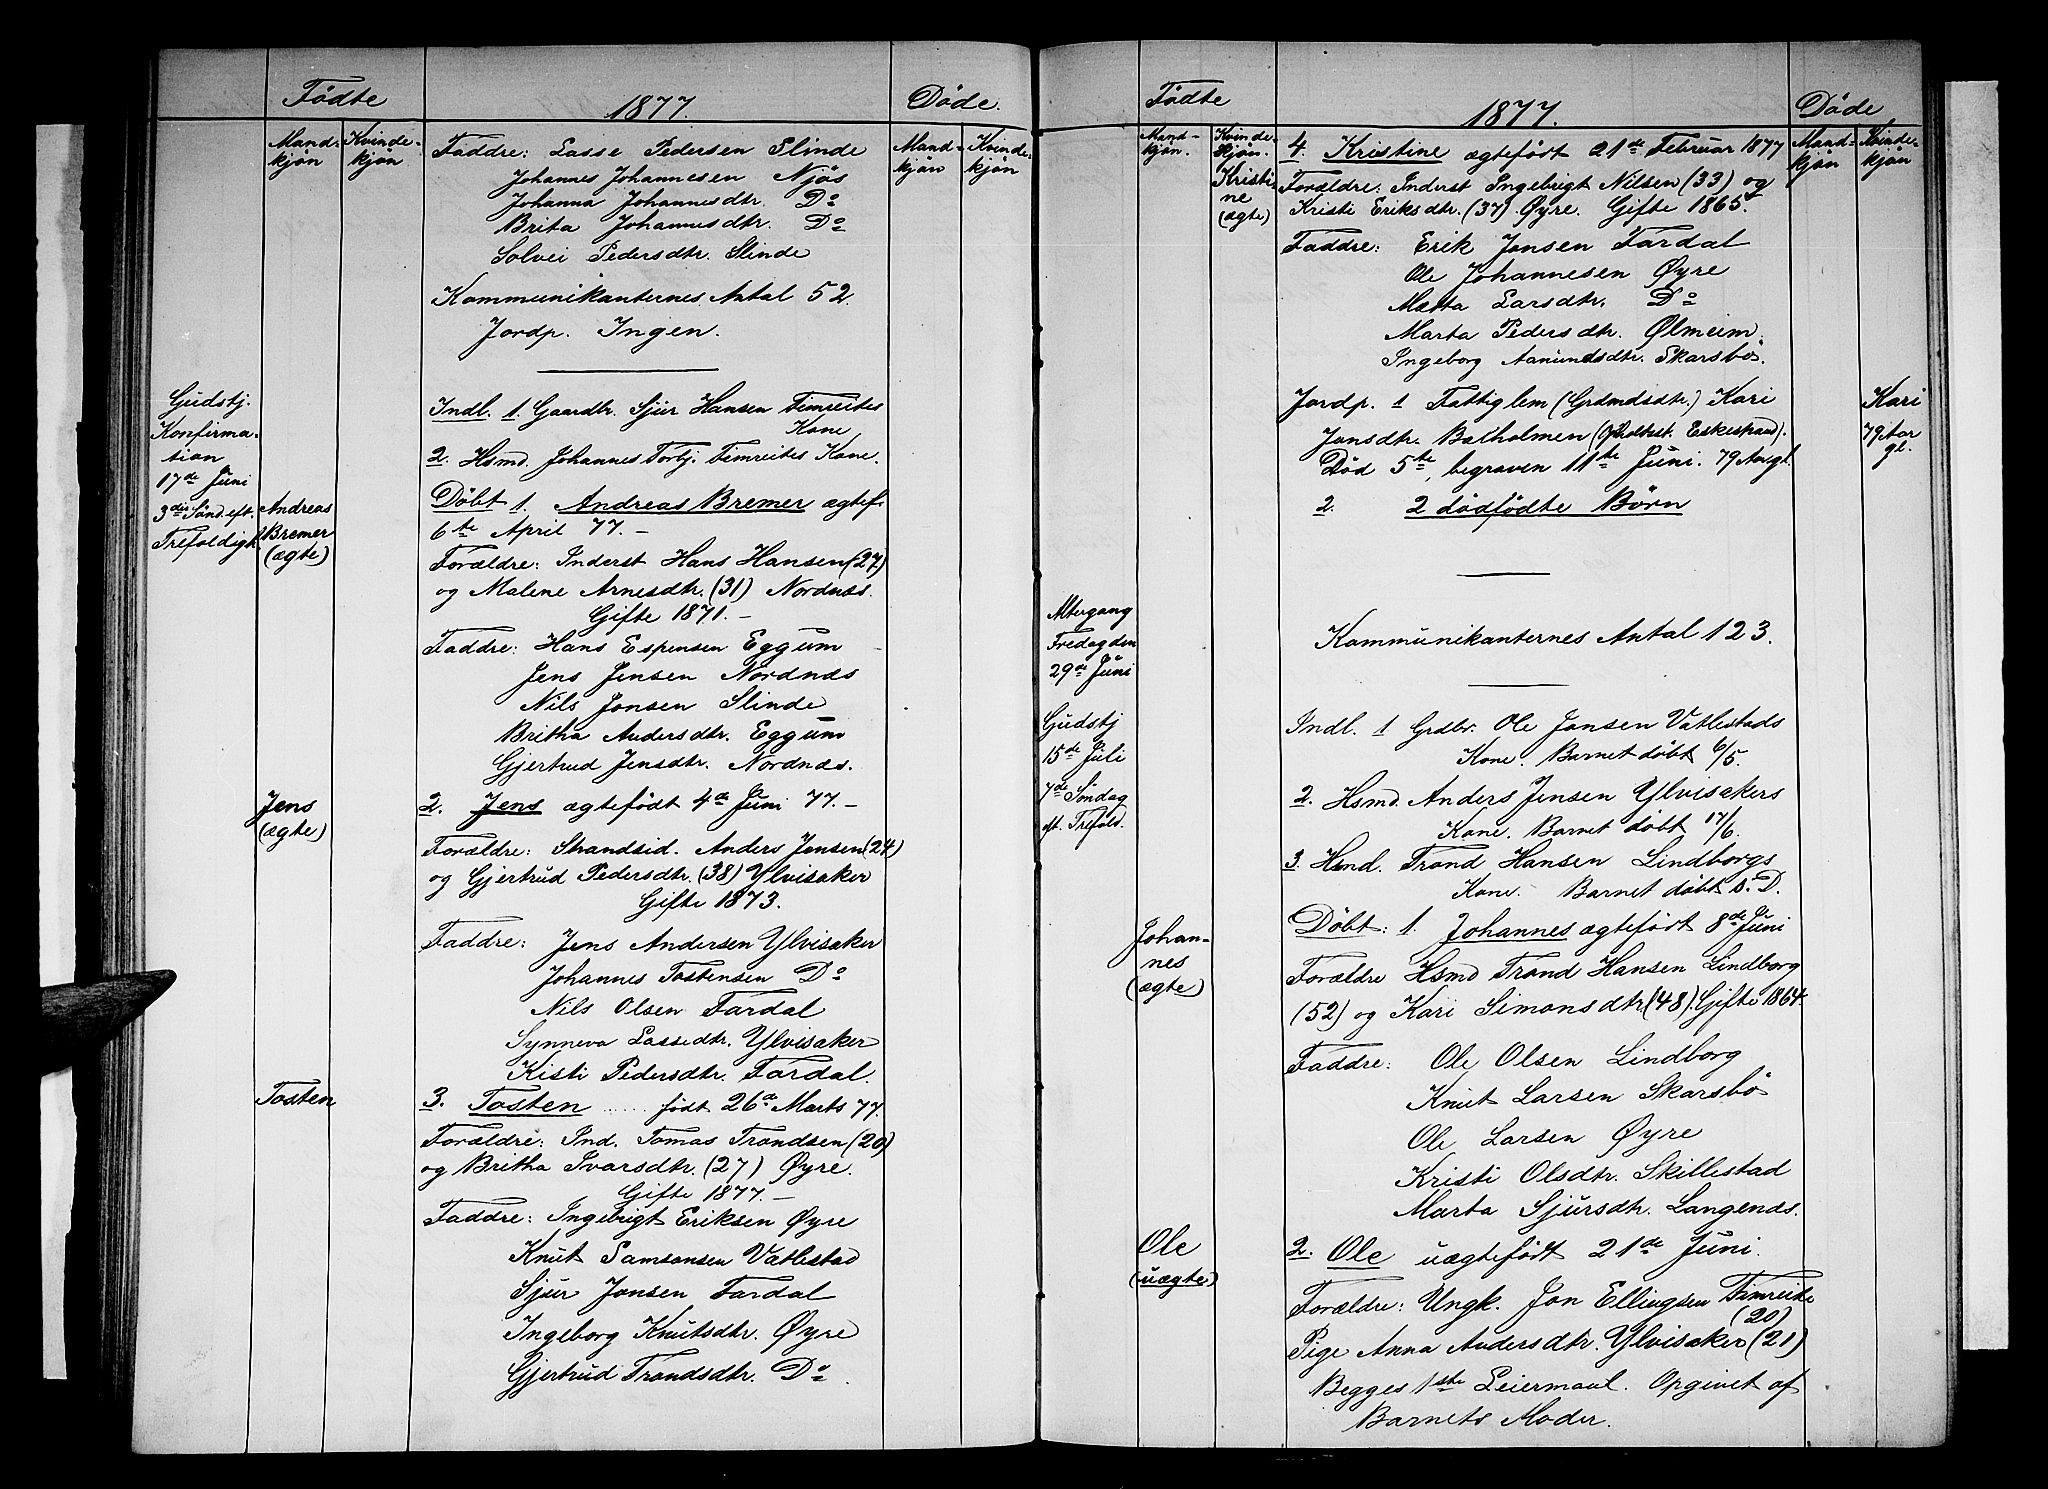 Fødte
1877.
Døde.
Mand-
kjøn
Kvinde-
kjøn
Mand-
kjøn
Kvinde-
kjøn
Faddre: Lasse Pedersen Slinde
Johannes Johannesen Njøs
Johanna Johannesdtr. Do
Brita Johannesdtr. Do
Solvei Pedersdtr. Slinde
Kommunikanternes Antal 52.
Jordp. Ingen.
Gudstj.
Konfirma-
tion
17de Juni
3die Sønd. eft.
Trefoldigh.
Indl. 1. Gaardbr. Sjur Hansen Timreites
Kone
2. Hsmd. Johannes Torbj. Timreites Kone.
Andreas
Bremer
(ægte)
Døbt 1. Andreas Bremer ægtef.
6te April 77.-
Forældre: Inderst Hans Hansen (27)
og Malene Arnesdtr. (31) Nordnæs.
Gifte 1871.-
Faddre: Hans Espensen Eggum
Jens Jensen Nordnæs
Nils Jonsen Slinde
Britha Andersdtr. Eggum
Gjertrud Jensdtr. Nordnæs.
Jens
(ægte)
2. Jens ægtefødt 4de Juni 77.-
Forældre: Strandsid. Anders Jensen (24)
og Gjertrud Pedersdtr. (38) Ylvisaker
Gifte 1873.
Faddre: Jens Andersen Ylvisaker
Johannes Tostensen Do
Nils Olsen Fardal
Synneva Lassedtr. Ylvisaker
Kisti Pedersdtr. Fardal.
Tosten
3. Tosten ...... født 26de Marts 77.
Forældre: Ind. Tomas Trondsen (20)
og Britha Ivarsdtr. (27) Øyre.
Gifte 1877.-
Faddre: Ingebrigt Eriksen Øyre
Knut Samsonsen Vatlestad
Sjur Jonsen Fardal
Ingeborg Knutsdtr. Øyre
Gjertrud Trondsdtr. Do.
Fødte
1877.
Døde,
Mand-
kjøn.
Kvinde-
kjøn.
Mand-
kjøn
Kvinde-
kjøn
Kristi-
ne
(ægte)
4. Kristine ægtefødt 21de Februar 1877
Forældre: Inderst Ingebrigt Nilsen (33) og
Kristi Eriksdtr. (37) Øyre. Gifte 1865.
Faddre: Erik Jonsen Fardal
Ole Johannesen Øyre
Mætta Larsdtr. Do
Marta Pedersdtr. Ølmeim.
Ingeborg Aamundsdtr. Skarsbø.
Jordp. 1 Fattiglem (Grdmdsdtr.) Kari
Jonsdtr. Bælholmen Eskestrand).
Død 5te, begraven 11te Juni. 79 Aar gl.
Kari
79 Aar
gl.
2. 2 dødfødte Børn
Altergang
Fredag den
29de Juni
Kommunikanternes Antal 123.
Gudstj
15de Juli
7de Søndag
eft. Trefold.
Indl. 1 Grdbr. Ole Jonsen Vatlestads
Kone. Barnet døbt 6/5.
2. Hsmd. Anders Jensen Ylvisakers
Kone. Barnet døbt 17/6.
3. Hsmd. Trond Hansen Lindborgs
Kone. Barnet døbt s. D.
Johan-
nes
(ægte)
Døbt: 1. Johannes ægtefødt 8de Juni
Forældre Hsmd Trond Hansen Lindborg
(52) og Kari Simonsdtr. (48). Gifte 1864.
Faddre: Ole Olsen Lindborg
Knut Larsen Skarsbø
Ole Larsen Øyre
Kristi Olsdtr. Skillestad
Marta Sjursdtr. Langenæs.
Ole
(uægte)
2. Ole uægtefødt 21de Juni.
Forældre: Ungk. Jon Ellingsen Timreite
(20)
Pige Anna Andersdtr. Ylvisaker (21)
Begges 1ste Leiermaal. Opgivet af
Barnets Moder.